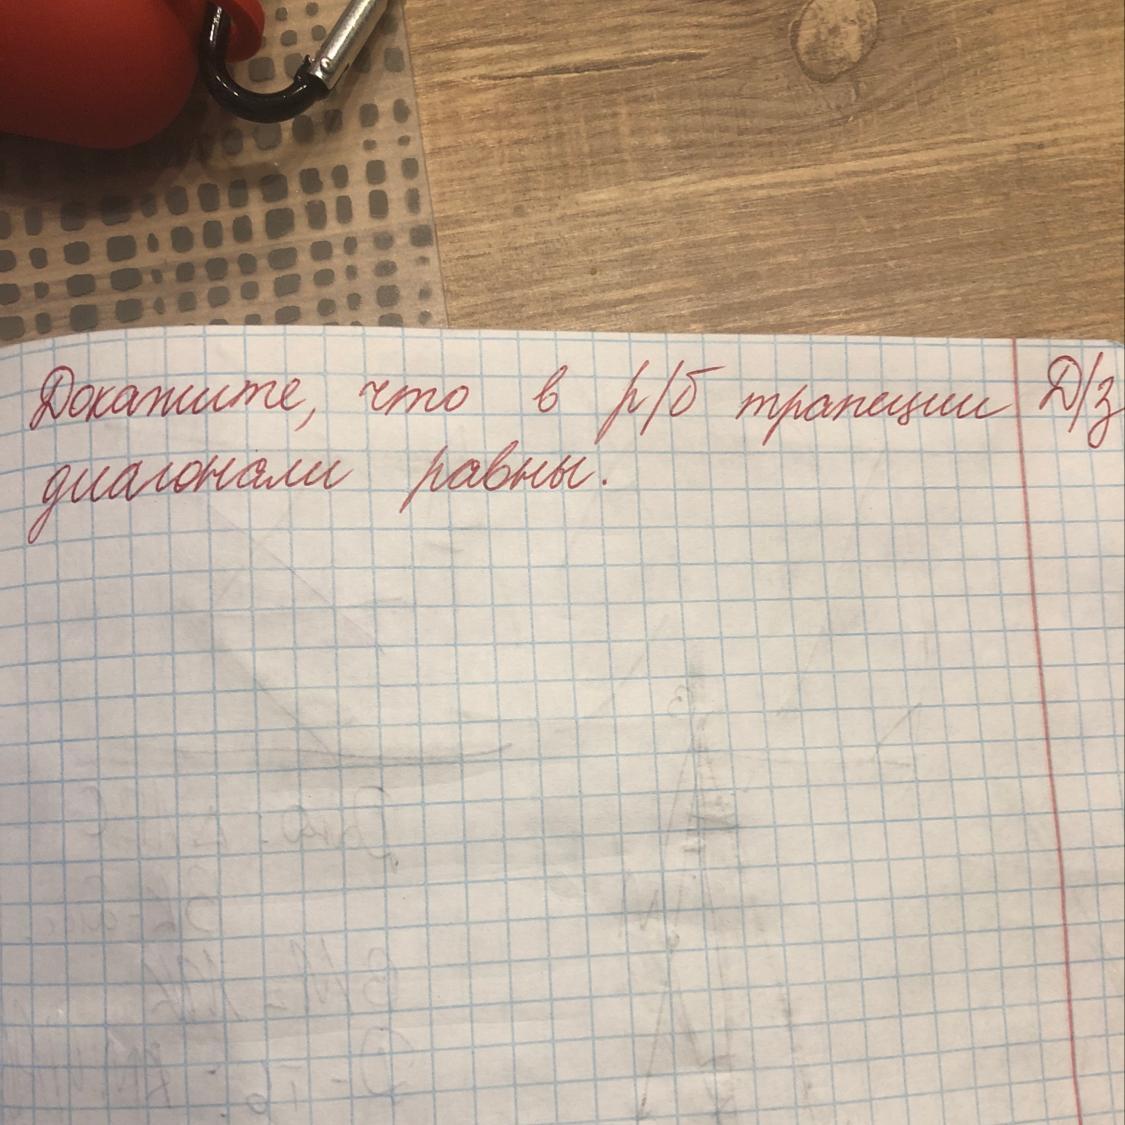 Докажите, что в р/б трапеции Д/з
диагонали равны.